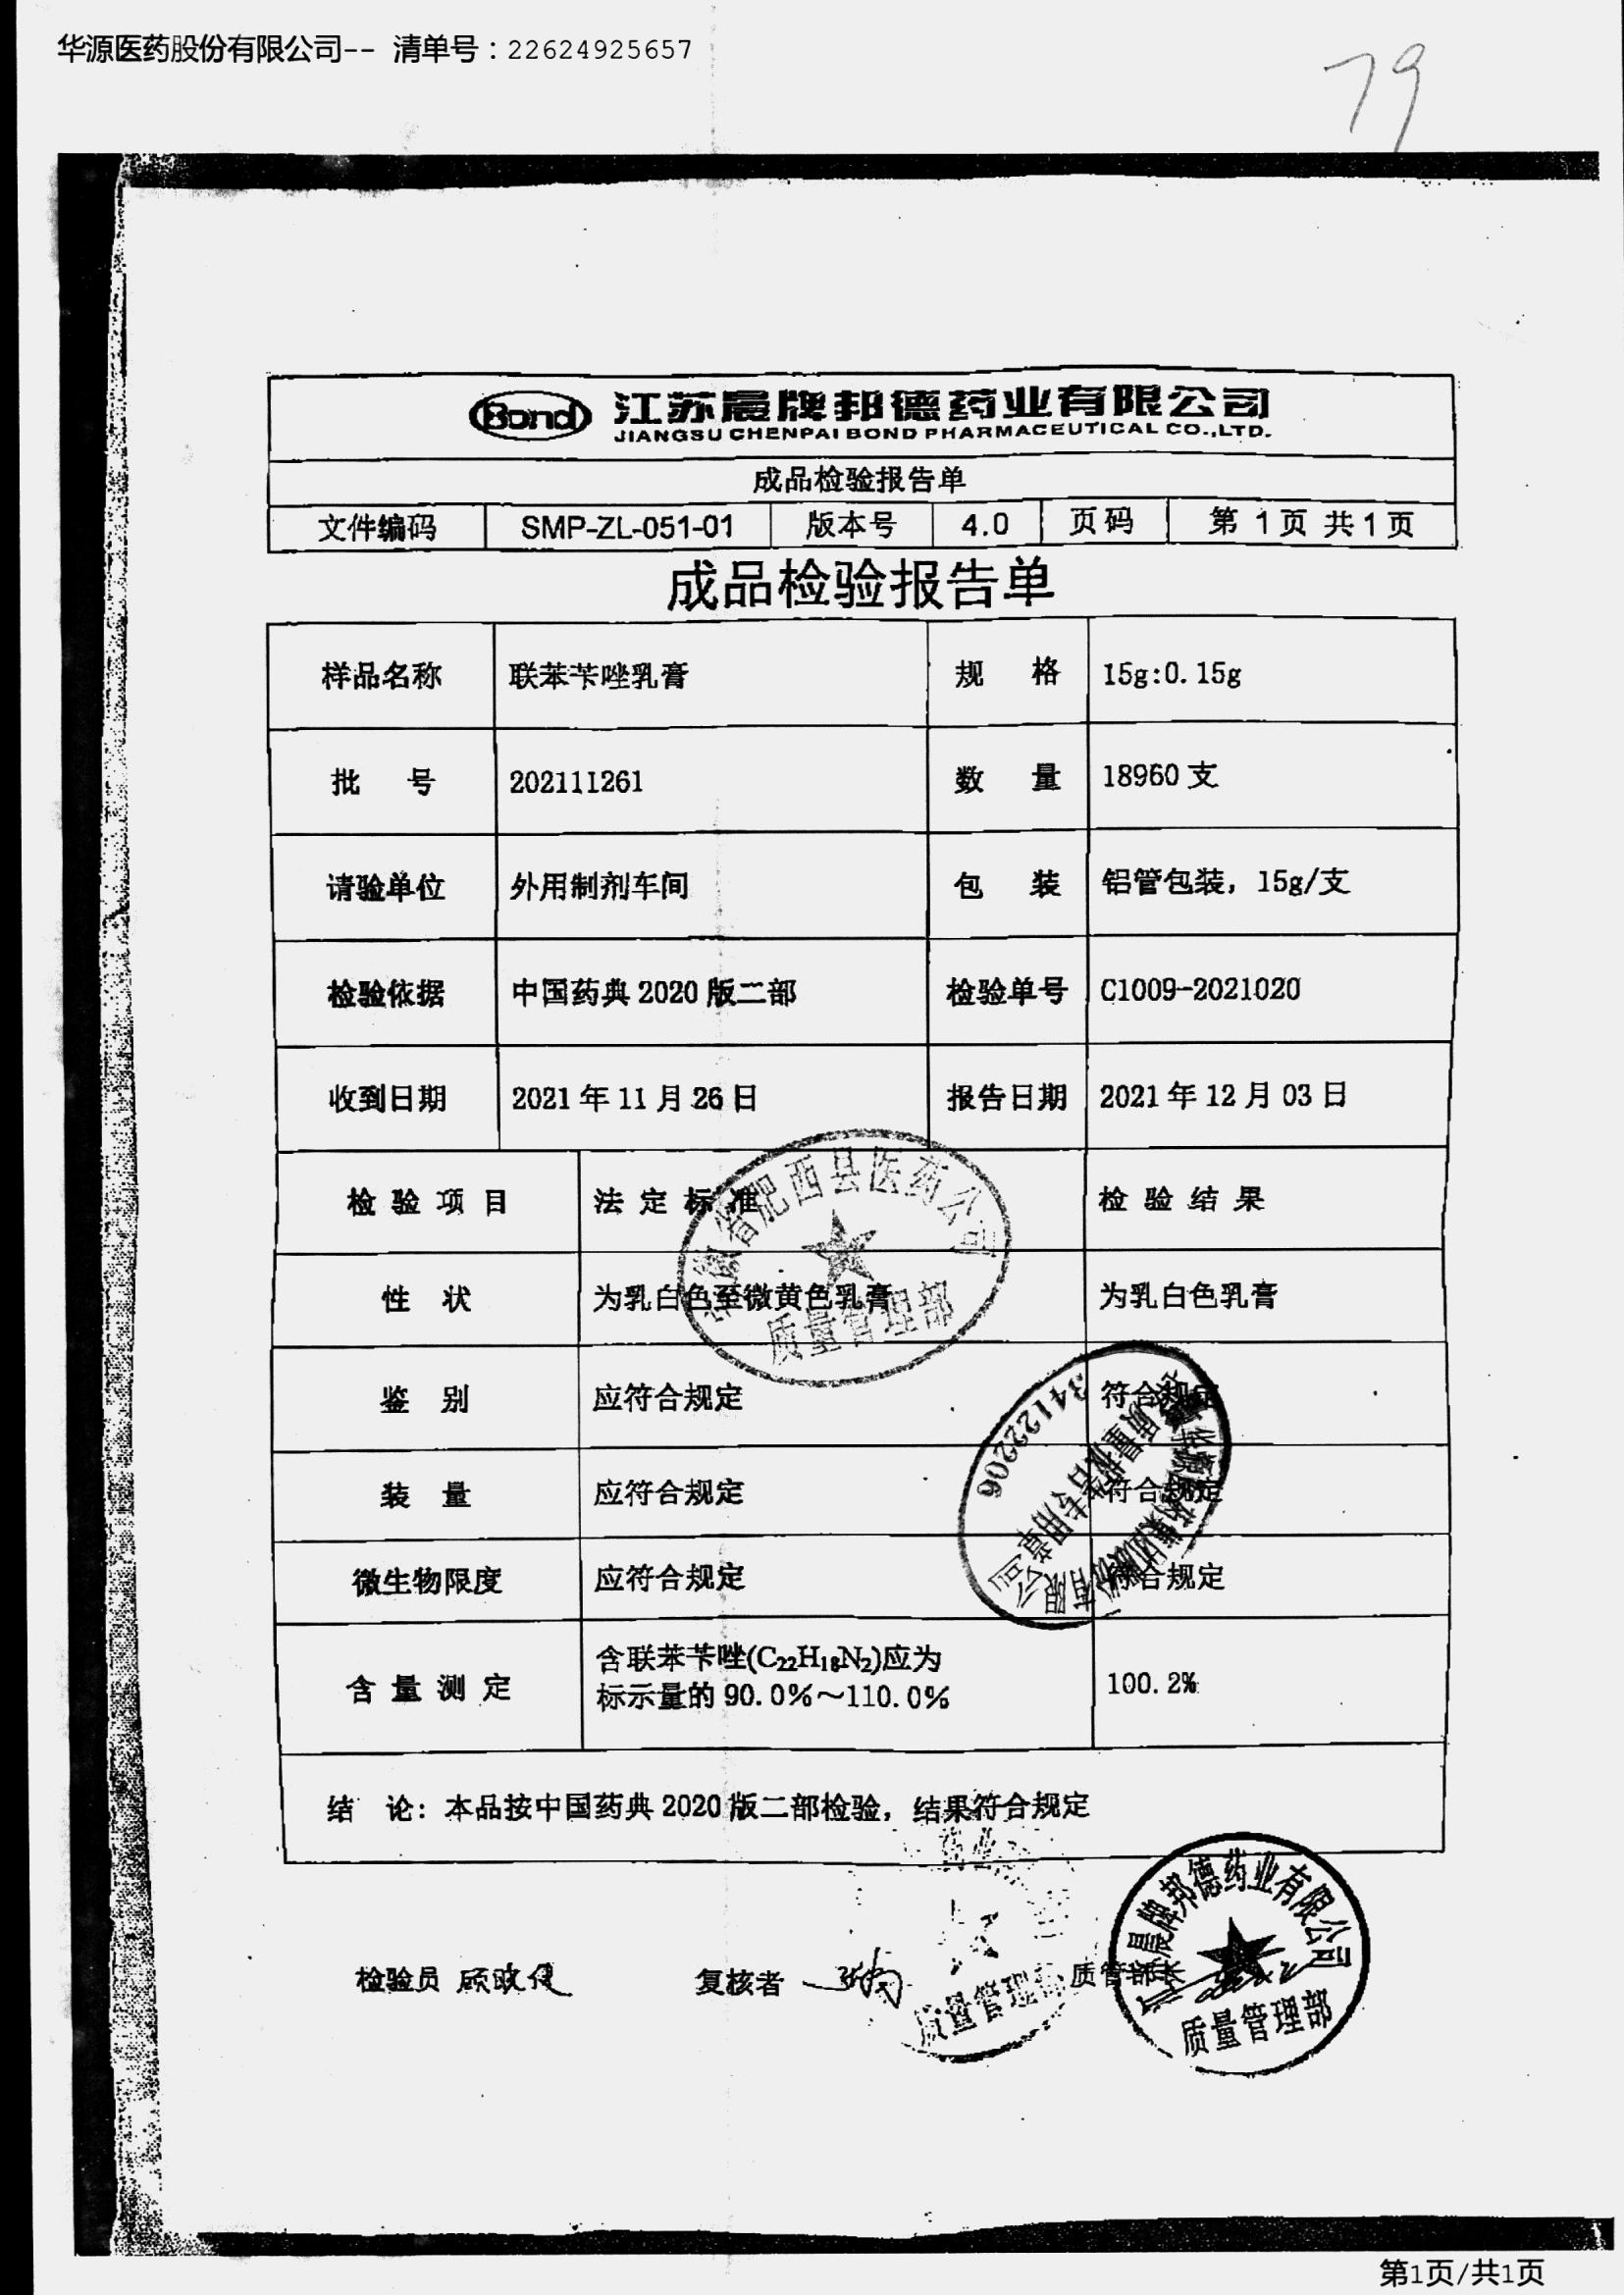 华源医药股份有限公司-- 清单号：22624925657
79
Bond 江苏晨牌邦德药业有限公司
JIANGSU CHENPAI BOND PHARMACEUTICAL CO.,LTD.
成品检验报告单
文件编码 SMP-ZL-051-01 版本号 4.0 页码 第 1 页 共 1 页
成品检验报告单
样品名称 联苯苄唑乳膏 规 格 15g:0.15g
批 号 202111261 数 量 18960 支
请验单位 外用制剂车间 包 装 铝管包装，15g/支
检验依据 中国药典 2020 版二部 检验单号 C1009-2021020
收到日期 2021 年 11 月 26 日 报告日期 2021 年 12 月 03 日
检 验 项 目 法 定 标 准 检 验 结 果
安徽省肥西县医药公司
质量管理部
性 状 为乳白色至微黄色乳膏 为乳白色乳膏
鉴 别 应符合规定 符合规定
装 量 应符合规定 符合规定
微生物限度 应符合规定 符合规定
34122206
质量报告专用章
含 量 测 定 含联苯苄唑(C₂₂H₁₈N₂)应为 100.2%
标示量的 90.0%～110.0%
结 论：本品按中国药典 2020 版二部检验，结果符合规定
检验员 复核者 质管部长
质量管理部
晨牌邦德药业有限公司
质量管理部
第1页/共1页